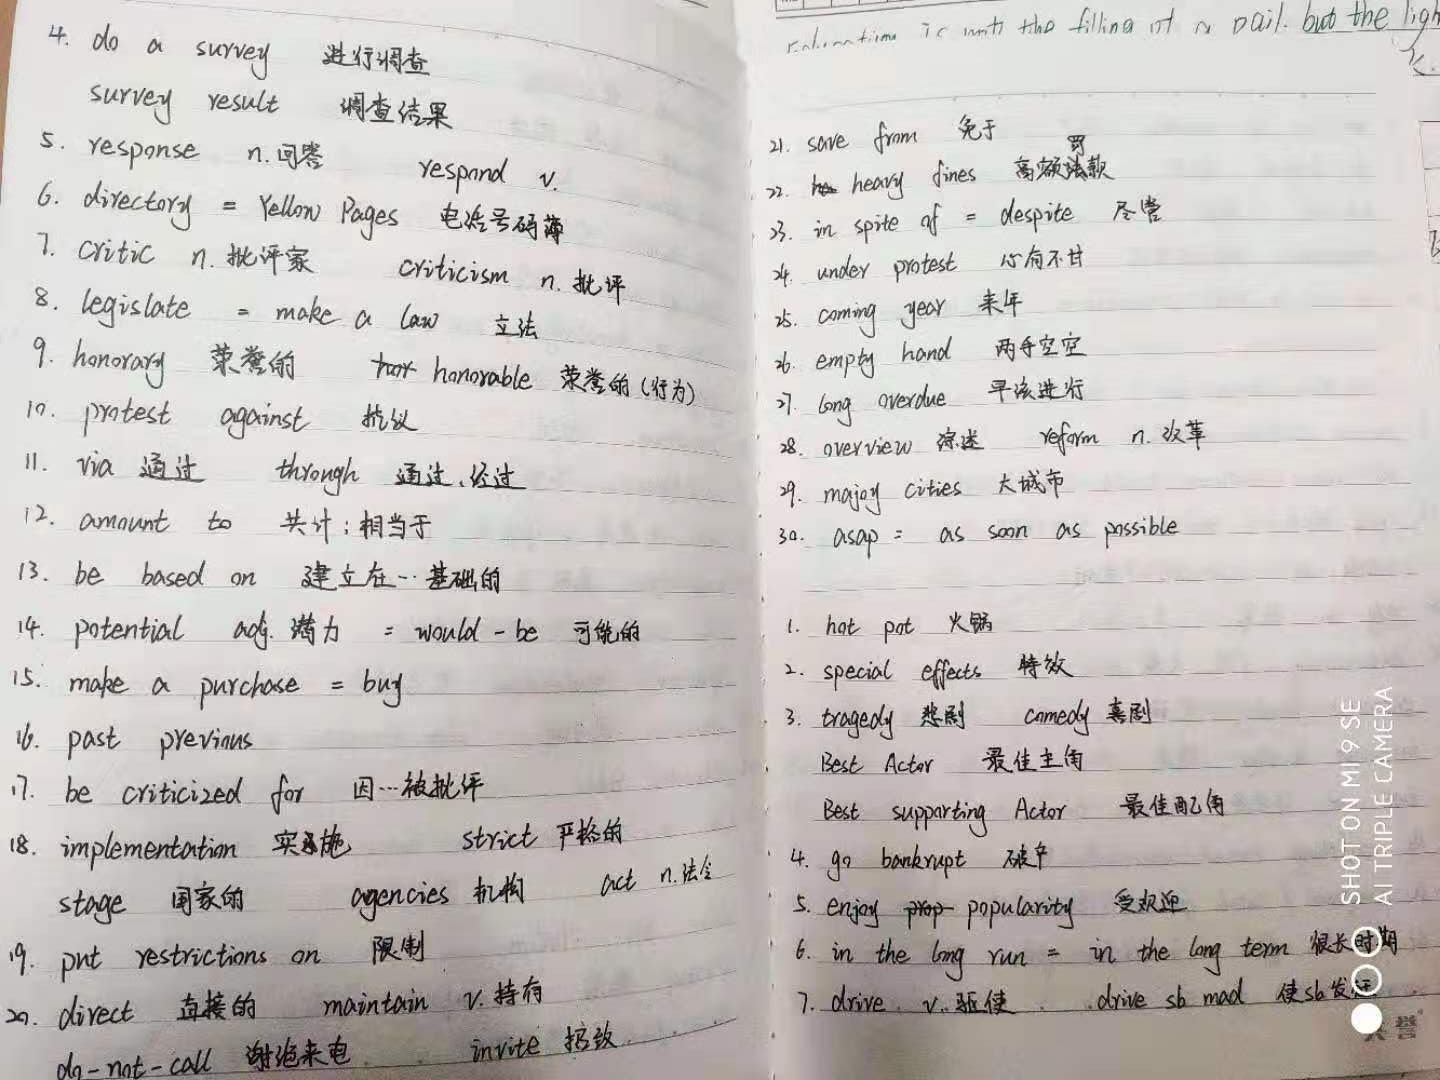 4. do a survey 进行调查
survey result 调查结果
5. response n.回答 respond v.
6. directory = Yellow Pages 电话号码薄
7. critic n.批评家 criticism n.批评
8. legislate = make a law 立法
9. honorary 荣誉的 honorable 荣誉的(行为)
10. protest against 抗议
11. via 通过 through 通过、经过
12. amount to 共计；相当于
13. be based on 建立在…基础的
14. potential adj. 潜力 = would-be 可能的
15. make a purchase = buy
16. past previous
17. be criticized for 因…被批评
18. implementation 实施 strict 严格的
stage 国家的 agencies 机构 act n.法令
19. put restrictions on 限制
20. direct 直接的 maintain v.持有
do-not-call 谢绝来电 invite 招致
is not the filling of a pail. but the ligh
21. save from 免于
22. heavy fines 高额罚款
23. in spite of = despite 尽管
24. under protest 心有不甘
25. coming year 来年
26. empty hand 两手空空
27. long overdue 早该进行
28. overview 综述 reform n.改革
29. majoy cities 大城市
30. asap = as soon as possible
1. hot pot 火锅
2. special effects 特效
3. tragedy 悲剧 comedy 喜剧
Best Actor 最佳主角
Best supporting Actor 最佳配角
4. go bankrupt 破产
5. enjoy popularity 受欢迎
6. in the long run = in the long term 很长时期
7. drive v.驱使 drive sb mad 使sb发
SHOT ON MI 9 SE
AI TRIPLE CAMERA